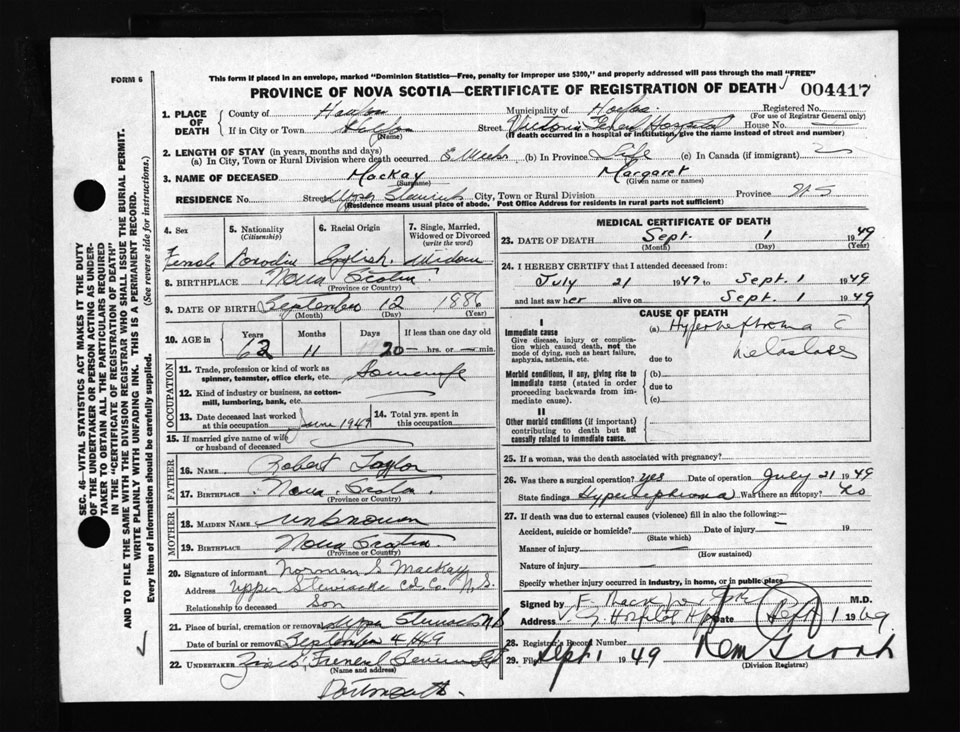 FORM 6
This form if placed in an envelope, marked "Dominion Statistics—Free, penalty for improper use $300," and properly addressed will pass through the mail "FREE"
PROVINCE OF NOVA SCOTIA—CERTIFICATE OF REGISTRATION OF DEATH 004417
SEC. 46—VITAL STATISTICS ACT MAKES IT THE DUTY
OF THE UNDERTAKER OR PERSON ACTING AS UNDER-
TAKER TO OBTAIN ALL THE PARTICULARS REQUIRED
IN THE "CERTIFICATE OF REGISTRATION OF DEATH"
AND TO FILE THE SAME WITH THE DIVISION REGISTRAR WHO SHALL ISSUE THE BURIAL PERMIT.
WRITE PLAINLY WITH UNFADING INK. THIS IS A PERMANENT RECORD.
Every item of Information should be carefully supplied. (See reverse side for instructions.)
1. PLACE OF DEATH
County of Halifax Municipality of Halifax Registered No.
(For use of Registrar General only)
If in City or Town Halifax Street Victoria General Hospital House No.
(Name) (If death occurred in a hospital or institution, give the name instead of street and number)
2. LENGTH OF STAY (in years, months and days)
(a) In City, Town or Rural Division where death occurred 8 Weeks (b) In Province Life (c) In Canada (if immigrant)
3. NAME OF DECEASED MacKay Margaret
(Surname) (Given name or names)
RESIDENCE No. Street Upper Stewiacke City, Town or Rural Division Province N.S
(Residence means usual place of abode. Post Office Address for residents in rural parts not sufficient)
4. Sex 5. Nationality (Citizenship) 6. Racial Origin 7. Single, Married, Widowed or Divorced (write the word)
Female Canadian English Widow
8. BIRTHPLACE Nova Scotia
(Province or Country)
9. DATE OF BIRTH September 12 1886
(Month) (Day) (Year)
10. AGE in Years Months Days If less than one day old
62 11 20 hrs. or min.
OCCUPATION
11. Trade, profession or kind of work as
spinner, teamster, office clerk, etc. Housewife
12. Kind of industry or business, as cotton-
mill, lumbering, bank, etc.
13. Date deceased last worked
at this occupation June 1949
14. Total yrs. spent in
this occupation
15. If married give name of wife
or husband of deceased
FATHER
16. NAME Robert Taylor
17. BIRTHPLACE Nova Scotia
(Province or Country)
MOTHER
18. MAIDEN NAME unknown
19. BIRTHPLACE Nova Scotia
(Province or Country)
20. Signature of informant Norman S. MacKay
Address Upper Stewiacke Col. Co. N.S.
Relationship to deceased Son
21. Place of burial, cremation or removal Upper Stewiacke N.S
Date of burial or removal September 4 1949
22. UNDERTAKER Funeral Service
(Name and address)
Dartmouth.
MEDICAL CERTIFICATE OF DEATH
23. DATE OF DEATH Sept. 1 1949
(Month) (Day) (Year)
24. I HEREBY CERTIFY that I attended deceased from:
July 21 1949 to Sept. 1 1949
and last saw her alive on Sept. 1 1949
CAUSE OF DEATH
I
Immediate cause
Give disease, injury or complica-
tion which caused death, not the
mode of dying, such as heart failure,
asphyxia, asthenia, etc.
(a) Hypernephroma c
due to metastases
Morbid conditions, if any, giving rise to
immediate cause (stated in order
proceeding backwards from im-
mediate cause).
(b)
due to
(c)
II
Other morbid conditions (if important)
contributing to death but not
causally related to immediate cause.
25. If a woman, was the death associated with pregnancy?
26. Was there a surgical operation? yes Date of operation July 21 1949
State findings Hypernephroma Was there an autopsy? no
27. If death was due to external causes (violence) fill in also the following:—
Accident, suicide or homicide? Date of injury 19
(State which)
Manner of injury
(How sustained)
Nature of injury
Specify whether injury occurred in industry, in home, or in public place
Signed by M.D.
Address V. G. Hospital Date Sept 1 1949
28. Registrar's Record Number
29. Filed Sept. 1 1949
(Division Registrar)